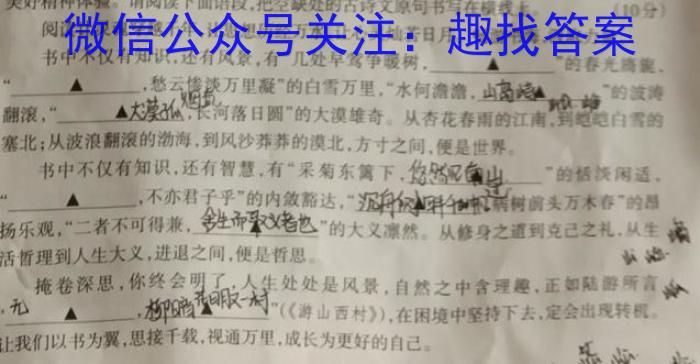 美好精神体验。请阅读下面语段,把空缺处的古诗文原句书写在横线上。(10分)
微信公众号关注:趣找答案
书中不仅有知识,还有风景,有“几处早莺争暖树,▲”的春光旖旎,
“▲,愁云惨淡万里凝”的白雪万里,“水何澹澹,山岛竦峙▲”的波涛
翻滚,“▲大漠孤烟直,长河落日圆”的大漠雄奇。从杏花春雨的江南,到皑皑白雪的
塞北;从波浪翻滚的渤海,到风沙莽莽的漠北,方寸之间,便是世界。
书中不仅有知识,还有智慧,有“采菊东篱下,悠然见南山”的恬淡闲适,
“▲,不亦君子乎”的内敛豁达,“沉舟侧畔千帆过,病树前头万木春”的昂
扬乐观,“二者不可得兼,舍生而取义者也▲”的大义凛然。从修身之道到克己之礼,从生
活哲理到人生大义,进退之间,便是哲思。
掩卷深思,你终会明了,人生处处是风景,自然之中含理趣,正如陆游所言
“▲,柳暗花明又一村▲”(《游山西村》),在困境中坚持下去,定会出现转机。
让我们以书为翼,思接千载,视通万里,成长为更好的自己。